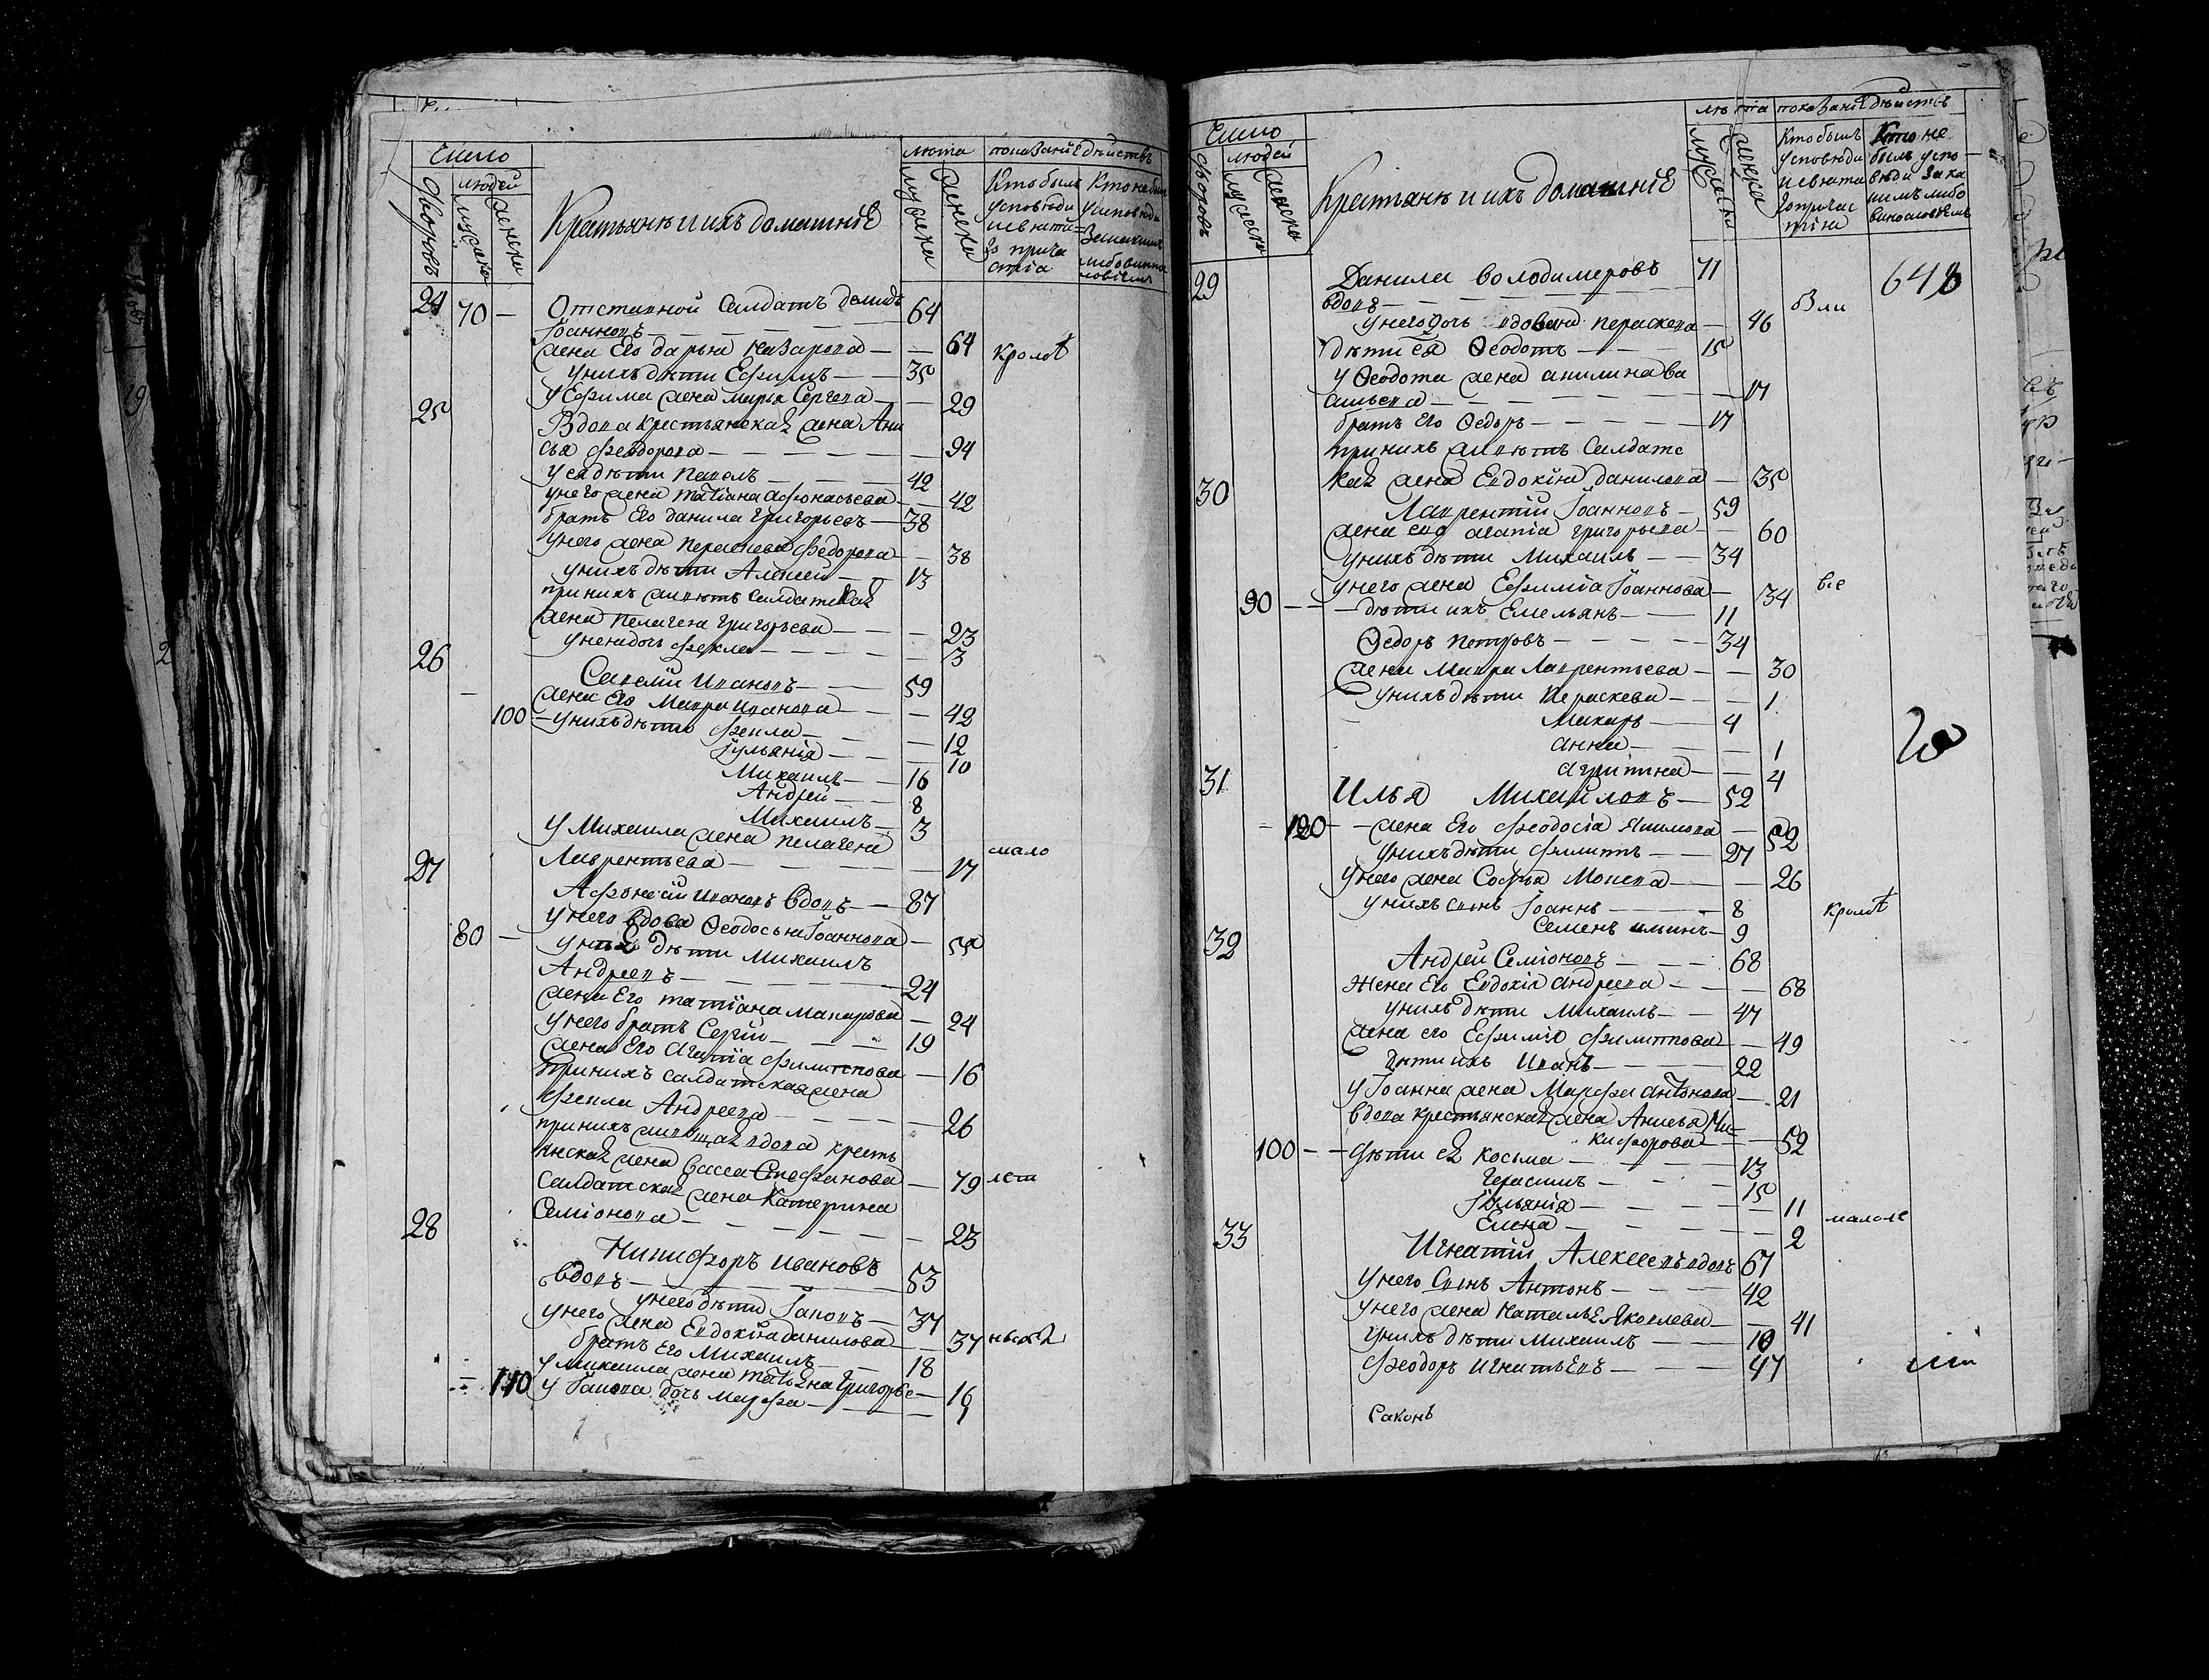 Число
людей
дворовъ
мужеска
женска
Крестьянѣ и ихъ домашнїе
лѣта
мужеска
женска
показанїе дѣйствъ
Кто былъ
у исповѣди
и свята
го прича
стїа
Кто не был
у исповѣди
24 70 — Отставной Салдатъ демидъ 64
Іоанновъ — — — — —
жена Его дарья назарова — — 64 кромѣ
у нихъ дѣти Ефимъ — — 35
у Ефима жена марья Сергѣева — — 29
25
Вдова крестьянская жена Ани
сья феодорова — — — — — 94
у ея дѣти павелъ — — — 42
у него жена татїана афонасьева — 42
братъ Его данила григорьевъ — 38
у него жена параскева федорова — 38
у нихъ дѣти Алексей — — 13
при нихъ живѣтъ салдатская
жена пелагея григорьева — — — 23
у нея дочь фекла — — — — — 3
26
Савелїй Ивановъ — — 59
жена Его Мавра иванова — — — 42
100 — у нихъ дѣти фекла — — — 12
Іульянїя — — — 10
Михаилъ — — 16
Андрей — — 8
Михаилъ — 3
у Михаила жена пелагея
Лаврентьева — — — — — 17 мало
27
Афонасїй ивановъ вдовъ — — 87
у него вдова Ѳеодосья Іоаннова — 55
80 — у нея дѣти Михаилъ
Андреевъ — — — — — 24
жена Его татїана макарова — 24
у него братъ Сергїй — — — 19
жена Его агапїа филиппова — 16
при нихъ салдатская жена
фекла Андреева — — — — 26
при нихъ живущая вдова кресть
янская жена васса Стефанова — 79 лѣт
салдатская жена Катерина
Семїонова — — — — — 23
28
Никифоръ ивановъ 53
вдовъ — — —
у него дѣти Іаковъ — 37
у него жена Евдокїя данилова — 37 ныхъ
братъ Его Михаилъ — — 18
у михаила жена татьяна григорье — 16
110 у Іакова дочь марфа — — — 1
Число
людей
дворовъ
мужеска
женска
Крестьянѣ и ихъ домашнїе
лѣта
мужеска
женска
показанїе дѣйствъ
Кто былъ
у исповѣди
и свята
го причас
тїа
Кто не
былъ у испо
вѣди за ка
кимъ либо
винословїемъ
29 Данила володимеровъ 71 648
вдовъ — — — — — — — Вли
у него дочь вдова параскева — 46
дѣти ея Ѳеодотъ — — — 15
у Ѳеодота жена акилина ва
сильева — — — — — — — 17
братъ Его Ѳедоръ — — — — — 17
при нихъ живѣтъ Салдатс
кая жена Евдокїя данилова — 35
30
Лаврентїй Іоанновъ — 59
жена его агапїа григорьева — — 60
у нихъ дѣти Михаилъ — — 34
у него жена Ефимїа Іоаннова — 34 все
90 — — дѣти ихъ Емельянъ — — 11
Ѳедоръ петровъ — — — — — 34
жена Мавра Лаврентьева — — 30
у нихъ дѣти параскева — — 1
Макаръ — — 4
анна — — — 1
агрипина — — 4
31
Илья Михайловъ — 52
120 — жена Его феодосїа якимова — 52
у нихъ дѣти филиппъ — — 27
у него жена Софья Мокева — — 26
у нихъ сынъ Іоаннъ — — — 8 кромѣ
Семенъ ильинъ — 9
32
Андрей Семїоновъ — — — 68
жена Его Евдокїя андреева — — — 68
у нихъ дѣти Михаилъ — — 47
жена его Ефимїя филиппова — 49
дѣти ихъ Иванъ — — — — 22
у Іоанна жена Марфа антонова — 21
вдова крестьянская жена Анисья Ни=
кифорова — — 52
100 — — дѣти ея косьма — — — — 13
Герасимъ — — — 15
Іульянїя — — — — 11
Елена — — — — — 2 малолѣ
33
Игнатїй Алексеевъ вдовъ 67
у него Сынъ Антонъ — — — 42
у него жена наталья Яковлева — — 41
у нихъ дѣти Михаилъ — — — 10
феодоръ игнатьевъ — — — 47